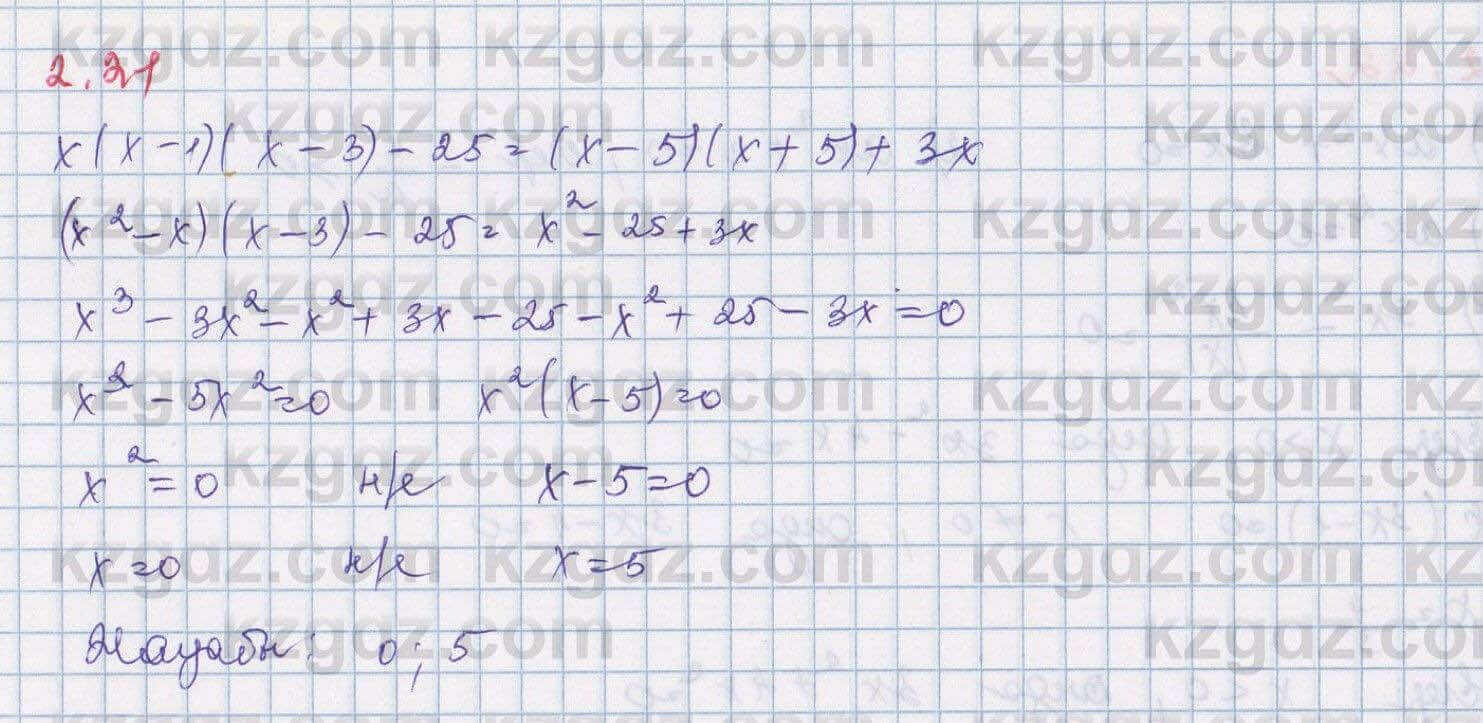 2.21
x(x-1)(x-3)-25=(x-5)(x+5)+3x
(x²-x)(x-3)-25=x²-25+3x
x³-3x²-x²+3x-25-x²+25-3x=0
x³-5x²=0 x²(x-5)=0
x²=0 н/е x-5=0
x=0 н/е x=5
Жауабы: 0; 5
kzgdz.com